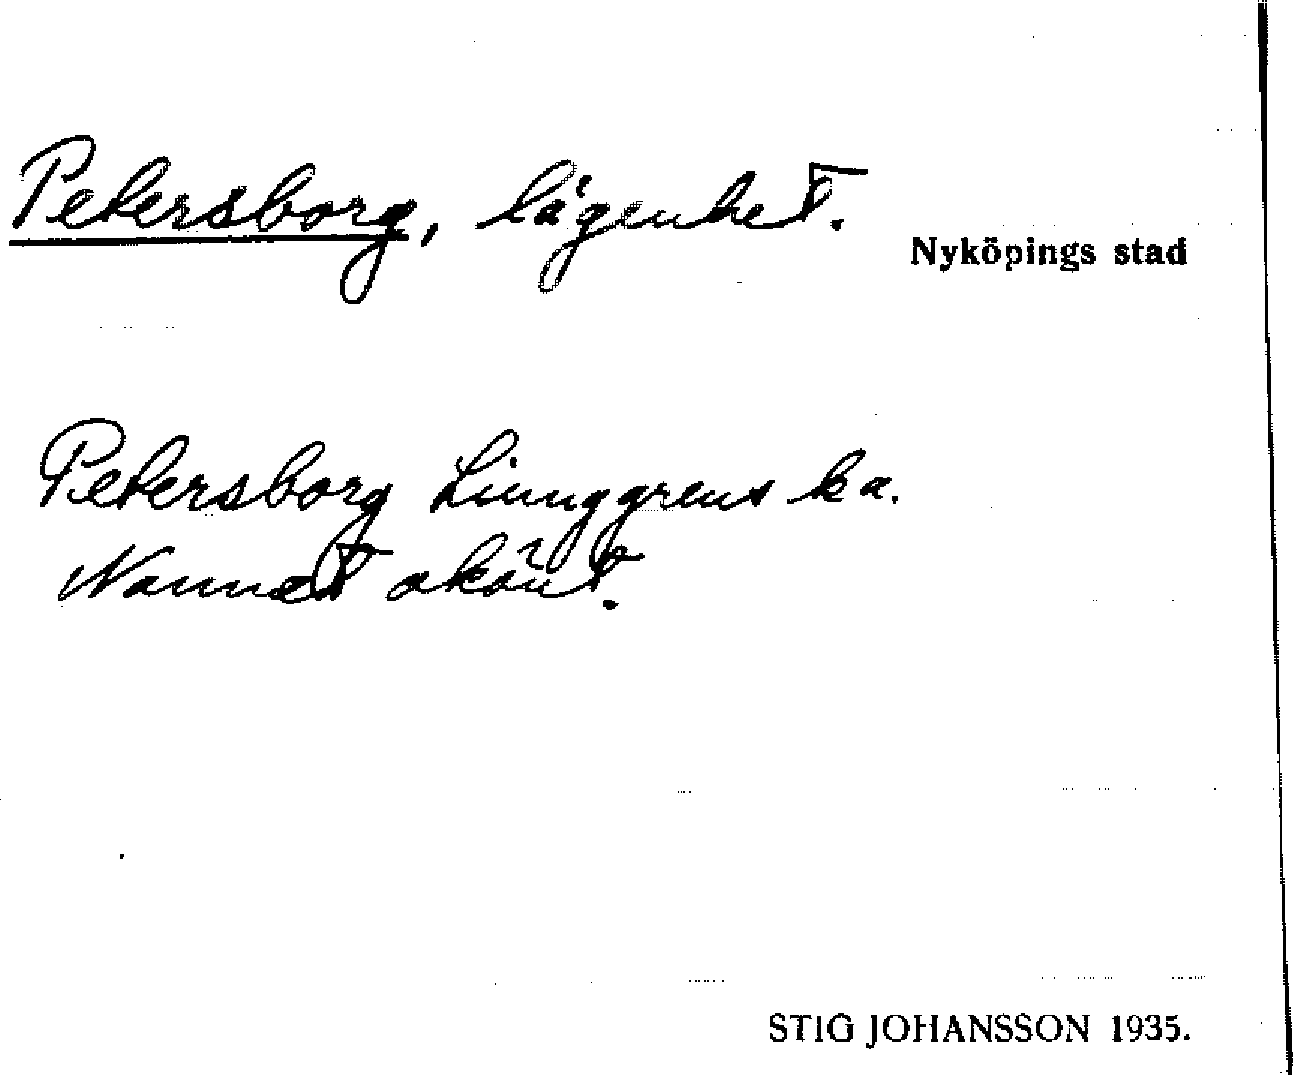 Petersborg, lägenhet.
Nyköpings stad
Petersborg Ljunggrens ka.
Namnet okänt.
STIG JOHANSSON 1935.